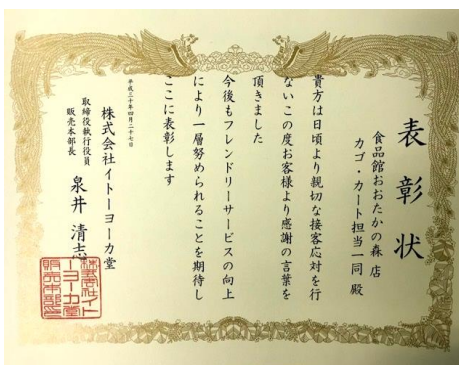 表彰状
食品館おおたかの森店
カゴ・カート担当一同 殿
貴方は日頃より親切な接客応対を行
ないこの度お客様より感謝の言葉を
頂きました
今後もフレンドリーサービスの向上
により一層努められることを期待し
ここに表彰します
平成三十年四月二十七日
株式会社イトーヨーカ堂
取締役執行役員
販売本部長
泉井 清志
株式会社イト
ーヨーカ堂
販売本部長